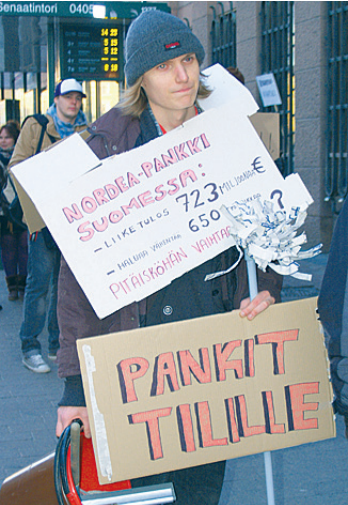 Senaatintori 0405
NORDEA-PANKKI
SUOMESSA:
- LIIKETULOS 723 MILJOONAA €
- HALUAA VÄHENTÄÄ 650
PITÄISKÖHÄN VAIHTAA ?
PANKIT
TILILLE